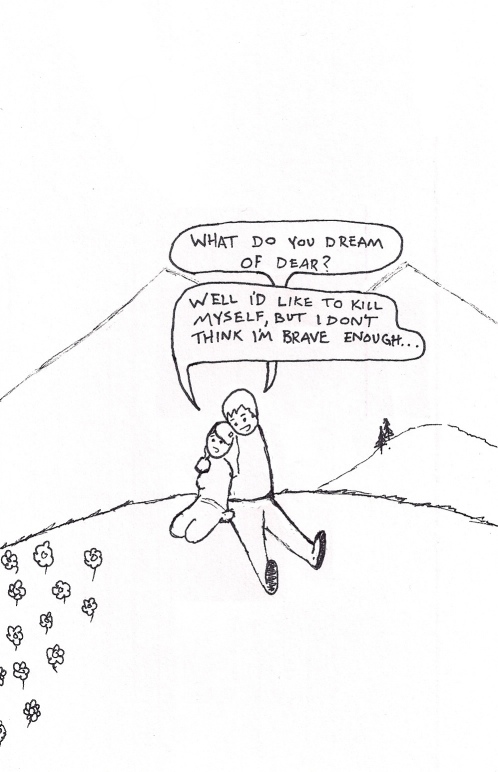 WHAT DO YOU DREAM
OF DEAR?
WELL I'D LIKE TO KILL
MYSELF, BUT I DON'T
THINK I'M BRAVE ENOUGH...